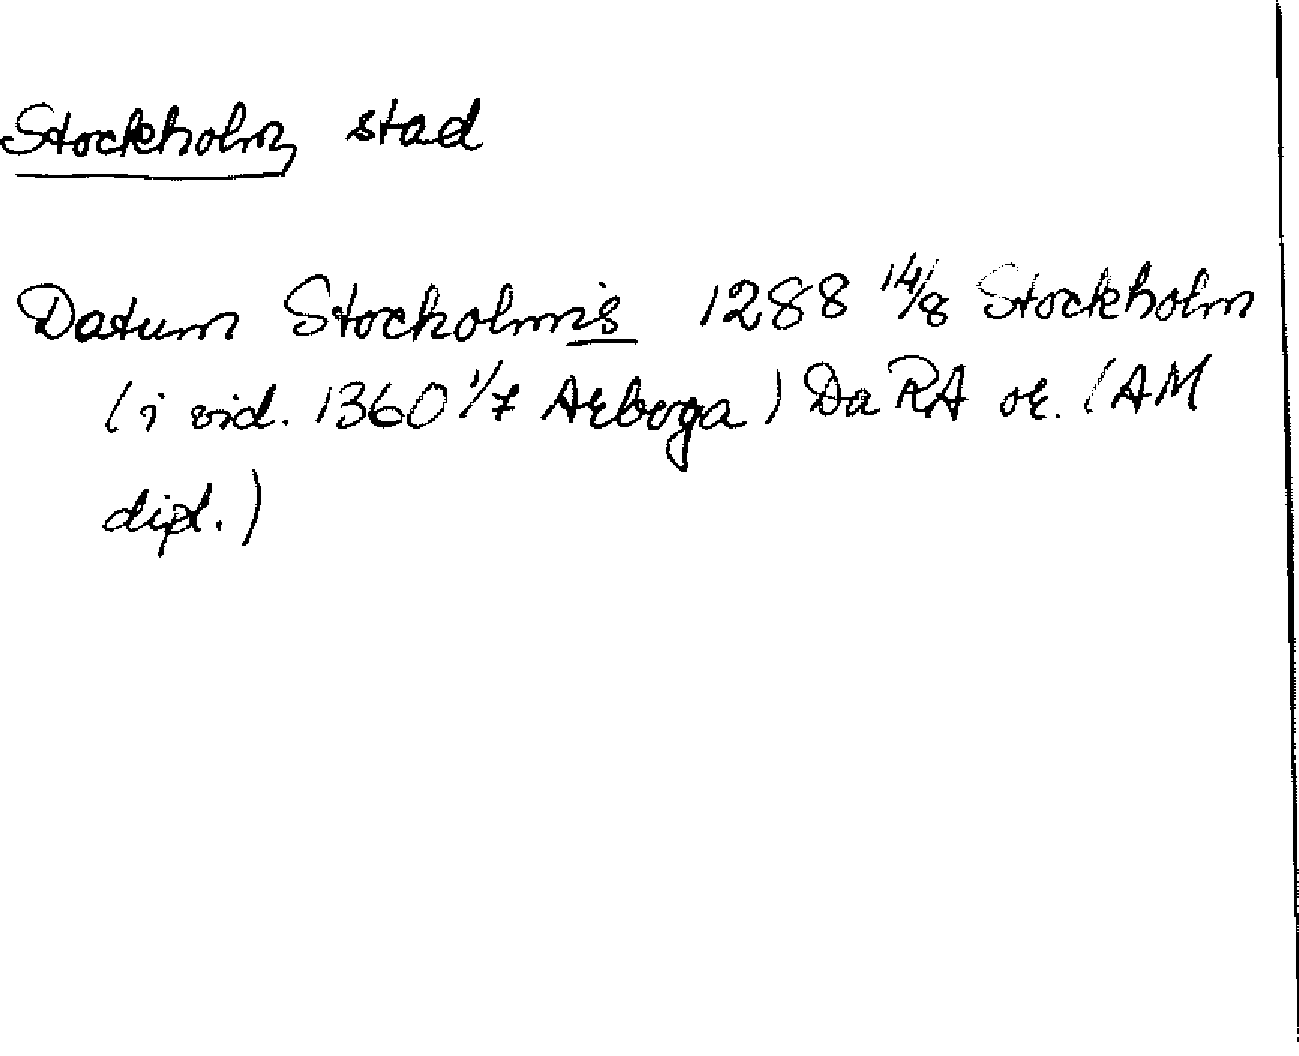 Stockholm, stad
Datum Stockolmis 1288 14/8 Stockholm
(i vid. 1360 1/7 Arboga) DaRA or. (AM
dipl.)